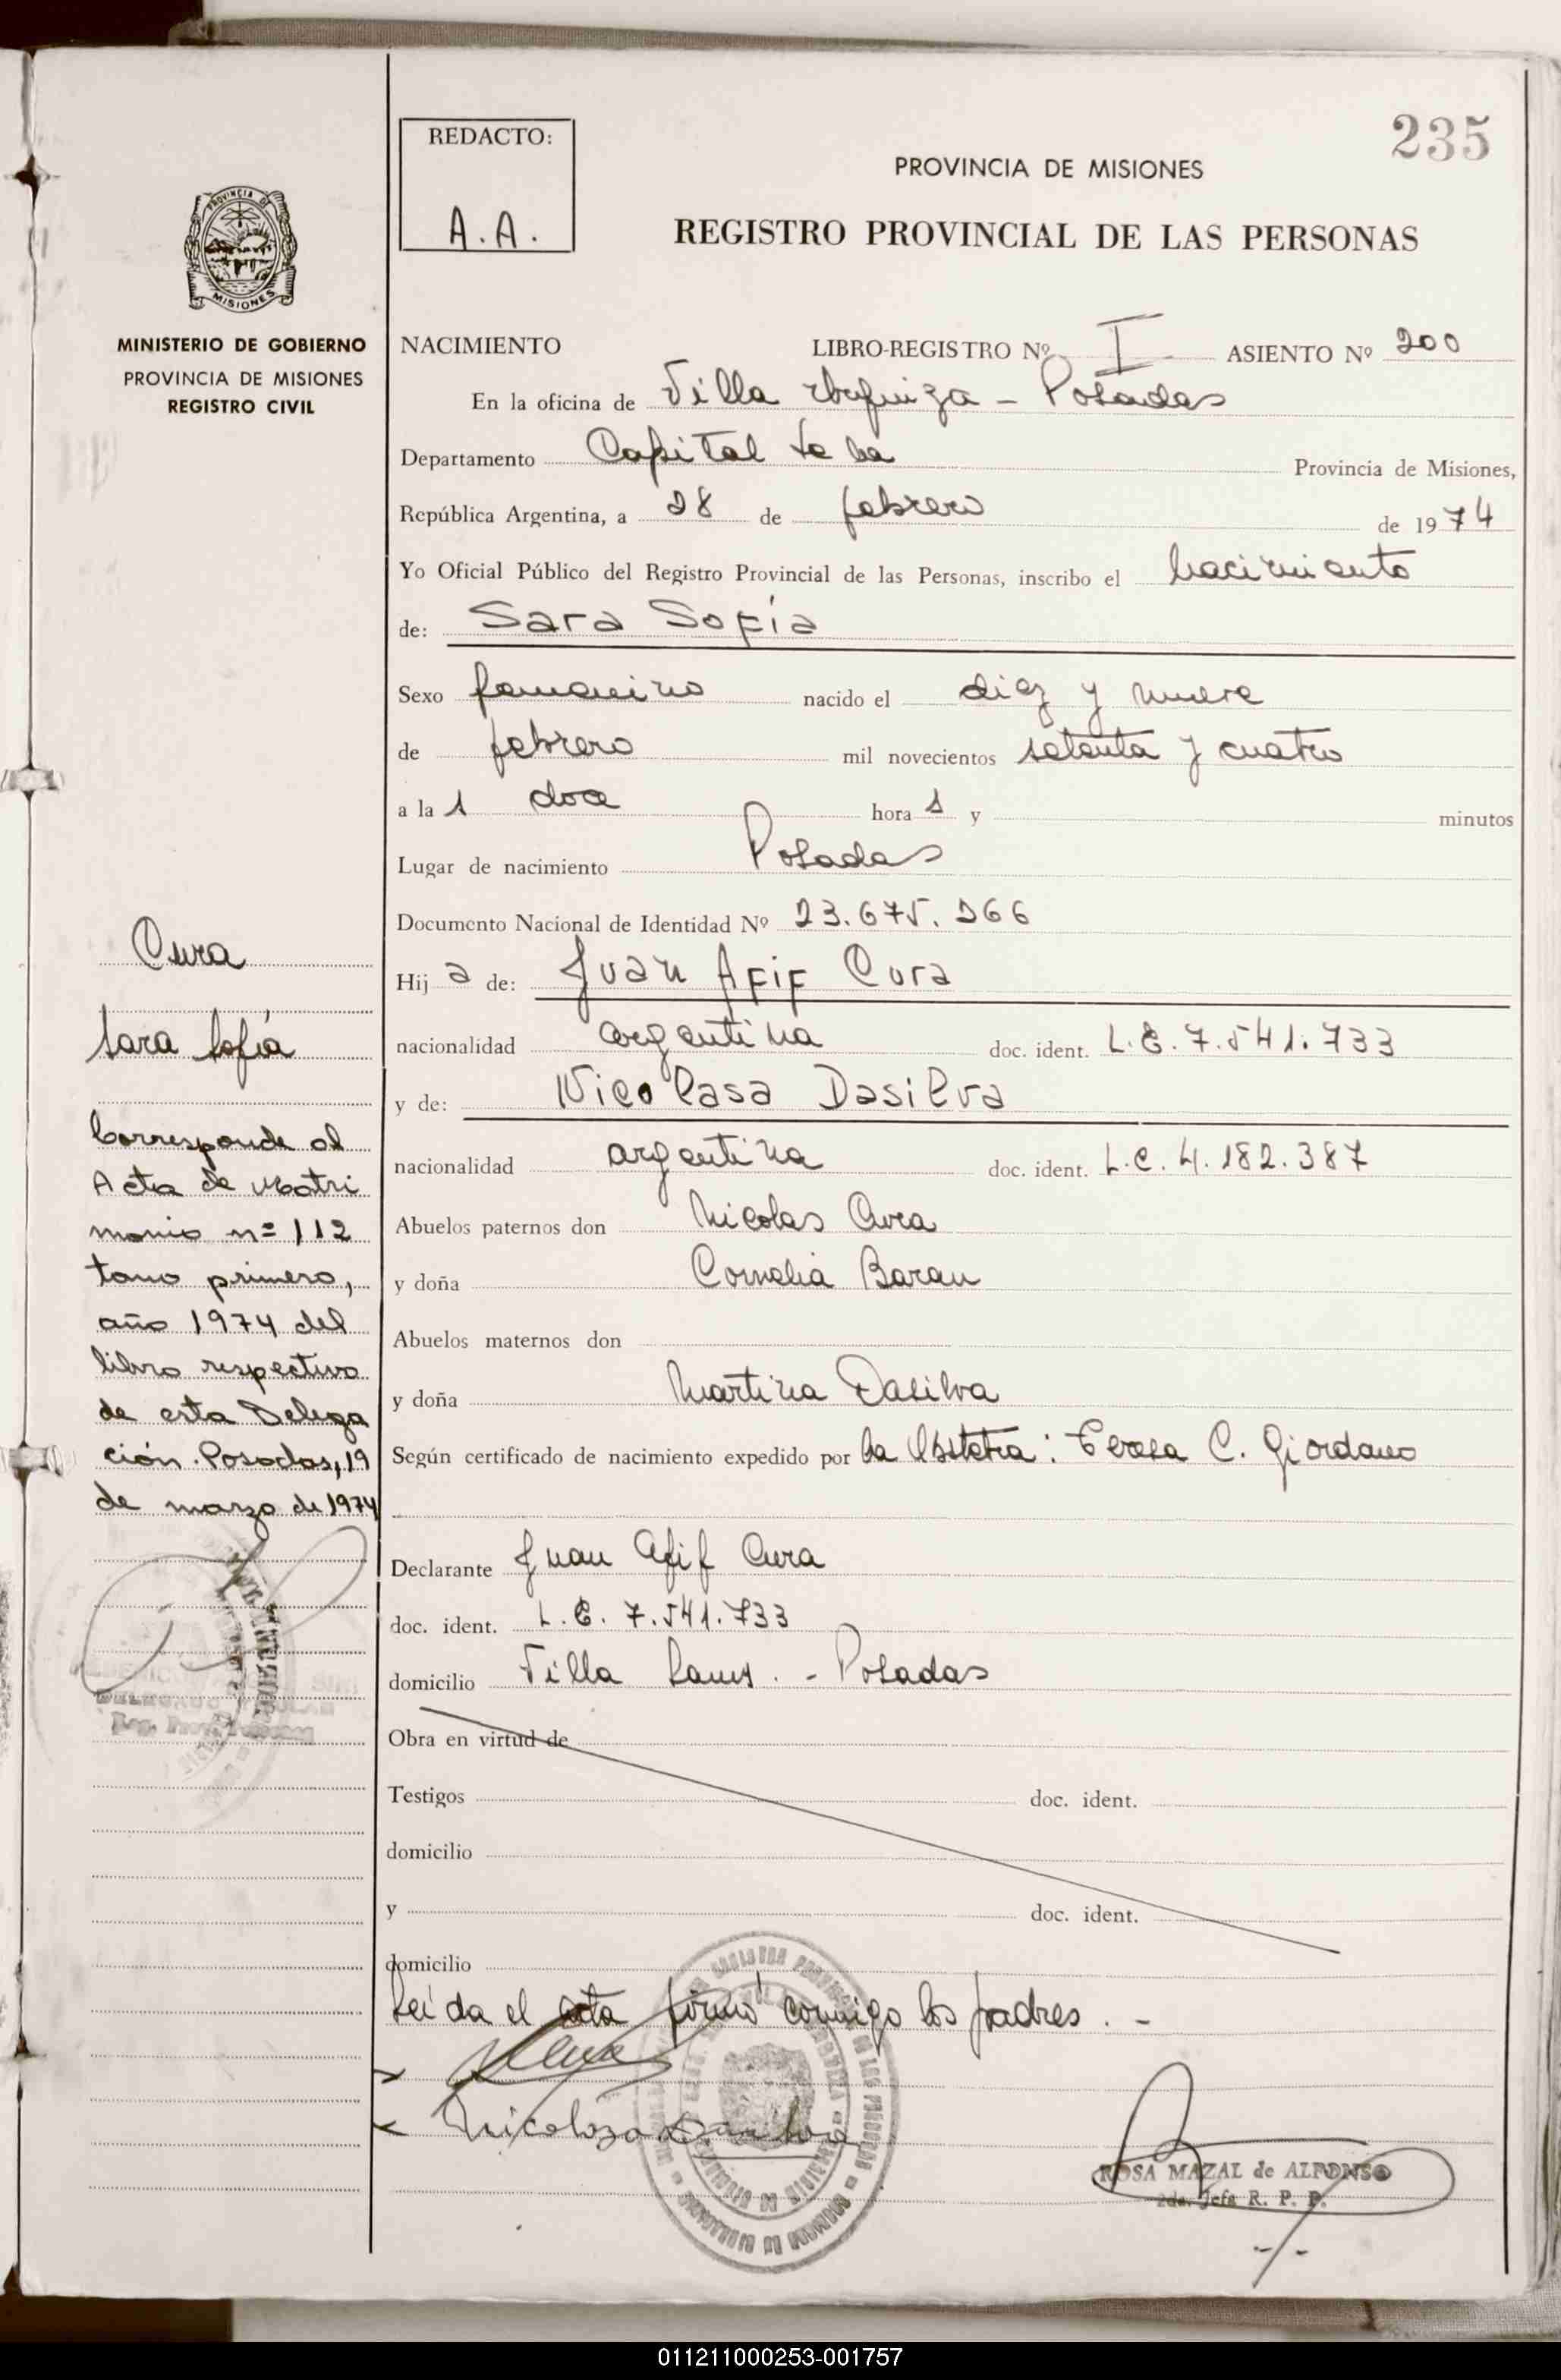 235
REDACTO:
A.A.
PROVINCIA DE MISIONES
REGISTRO PROVINCIAL DE LAS PERSONAS
PROVINCIA DE
MISIONES
MINISTERIO DE GOBIERNO
PROVINCIA DE MISIONES
REGISTRO CIVIL
NACIMIENTO LIBRO-REGISTRO Nº I ASIENTO Nº 200
En la oficina de Villa - Posadas
Departamento Capital Provincia de Misiones,
República Argentina, a 28 de febrero de 1974
Yo Oficial Público del Registro Provincial de las Personas, inscribo el nacimiento
de: Sara Sofía
Sexo femenino nacido el diez y nueve
de febrero mil novecientos setenta y cuatro
a la s doce hora s y minutos
Lugar de nacimiento Posadas
Documento Nacional de Identidad Nº 23.675.266
Hij a de: Juan Afif Cura
nacionalidad argentina doc. ident. L.E. 7.541.733
y de: Nicolasa Dasilva
nacionalidad argentina doc. ident. L.C. 4.182.387
Abuelos paternos don Nicolas Cura
y doña Cornelia Baran
Abuelos maternos don
y doña Martina Dasilva
Según certificado de nacimiento expedido por la Obstetra: Teresa C. Giordano
Declarante Juan Afif Cura
doc. ident. L.E. 7.541.733
domicilio Villa Lanus. - Posadas
Obra en virtud de
Testigos doc. ident.
domicilio
y doc. ident.
domicilio
Leída el acta firmó conmigo los padres. -
ROSA MAZAL de ALFONSO
2da. Jefa R. P. P.
Cura
Sara Sofía
Corresponde al
Acta de Matri
monio nº 112
tomo primero,
año 1974 del
libro respectivo
de esta Delega
ción. Posadas, 19
de marzo de 1974
011211000253-001757